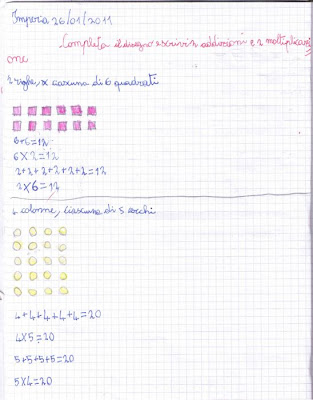 Imperia 26/01/2011
Completa il disegno e scrivi 2 addizioni e 2 moltiplicazi
one
2 righe, ciascuna di 6 quadrati
6+6=12
6X2=12
2+2+2+2+2+2=12
2X6=12
4 colonne, ciascuna di 5 cerchi
4+4+4+4+4=20
4X5=20
5+5+5+5=20
5X4=20